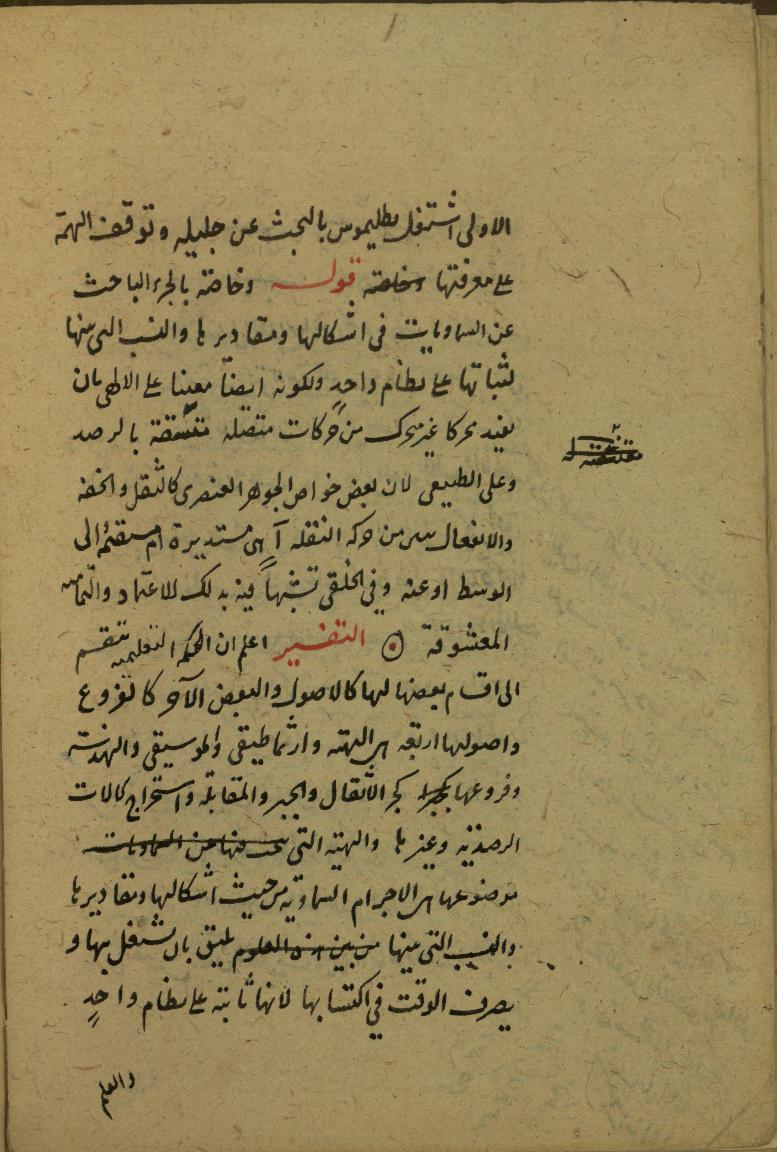 الاولى اشتغل بطليموس بالبحث عن جليله وتوقف الهمة
على معرفتها وخاصة قوله وخاصة بالجزء الباحث
عن السماويات في اشكالها ومقاديرها والنسب التى بينها
لثباتها على نظام واحد ولكونه ايضا معينا على الالهى بان
يفيد محركا غير متحرك من حركات متصله متسقة بالرصد
وعلى الطبيعى لان بعض خواص الجوهر العنصرى كالثقل والخفة
والانفعال من حركة النقله آهى مستديرة ام مستقيمة الى
الوسط او عنه وفى الخلقى تشبها فيه بذلك للاعتماد
المعشوقة التفسير اعلم ان الحكمة التعليمية تنقسم
الى اقسام بعضها لها كالاصول والبعض الآخر كالفروع
واصولها اربعة هى الهيئة وارثماطيقى والموسيقى والهندسة
وفروعها كجر الاثقال والجبر والمقابلة واستخراج كالات
الرصدية وغيرها والهيئة التى تبحث فيها عن السماويات
موضوعها هى الاجرام السماوية من حيث اشكالها ومقاديرها
والنسب التى بينها من بين هذه العلوم يليق بان يشتغل بها و
يصرف الوقت فى اكتسابها لانها ثابتة على نظام واحد
والعلم